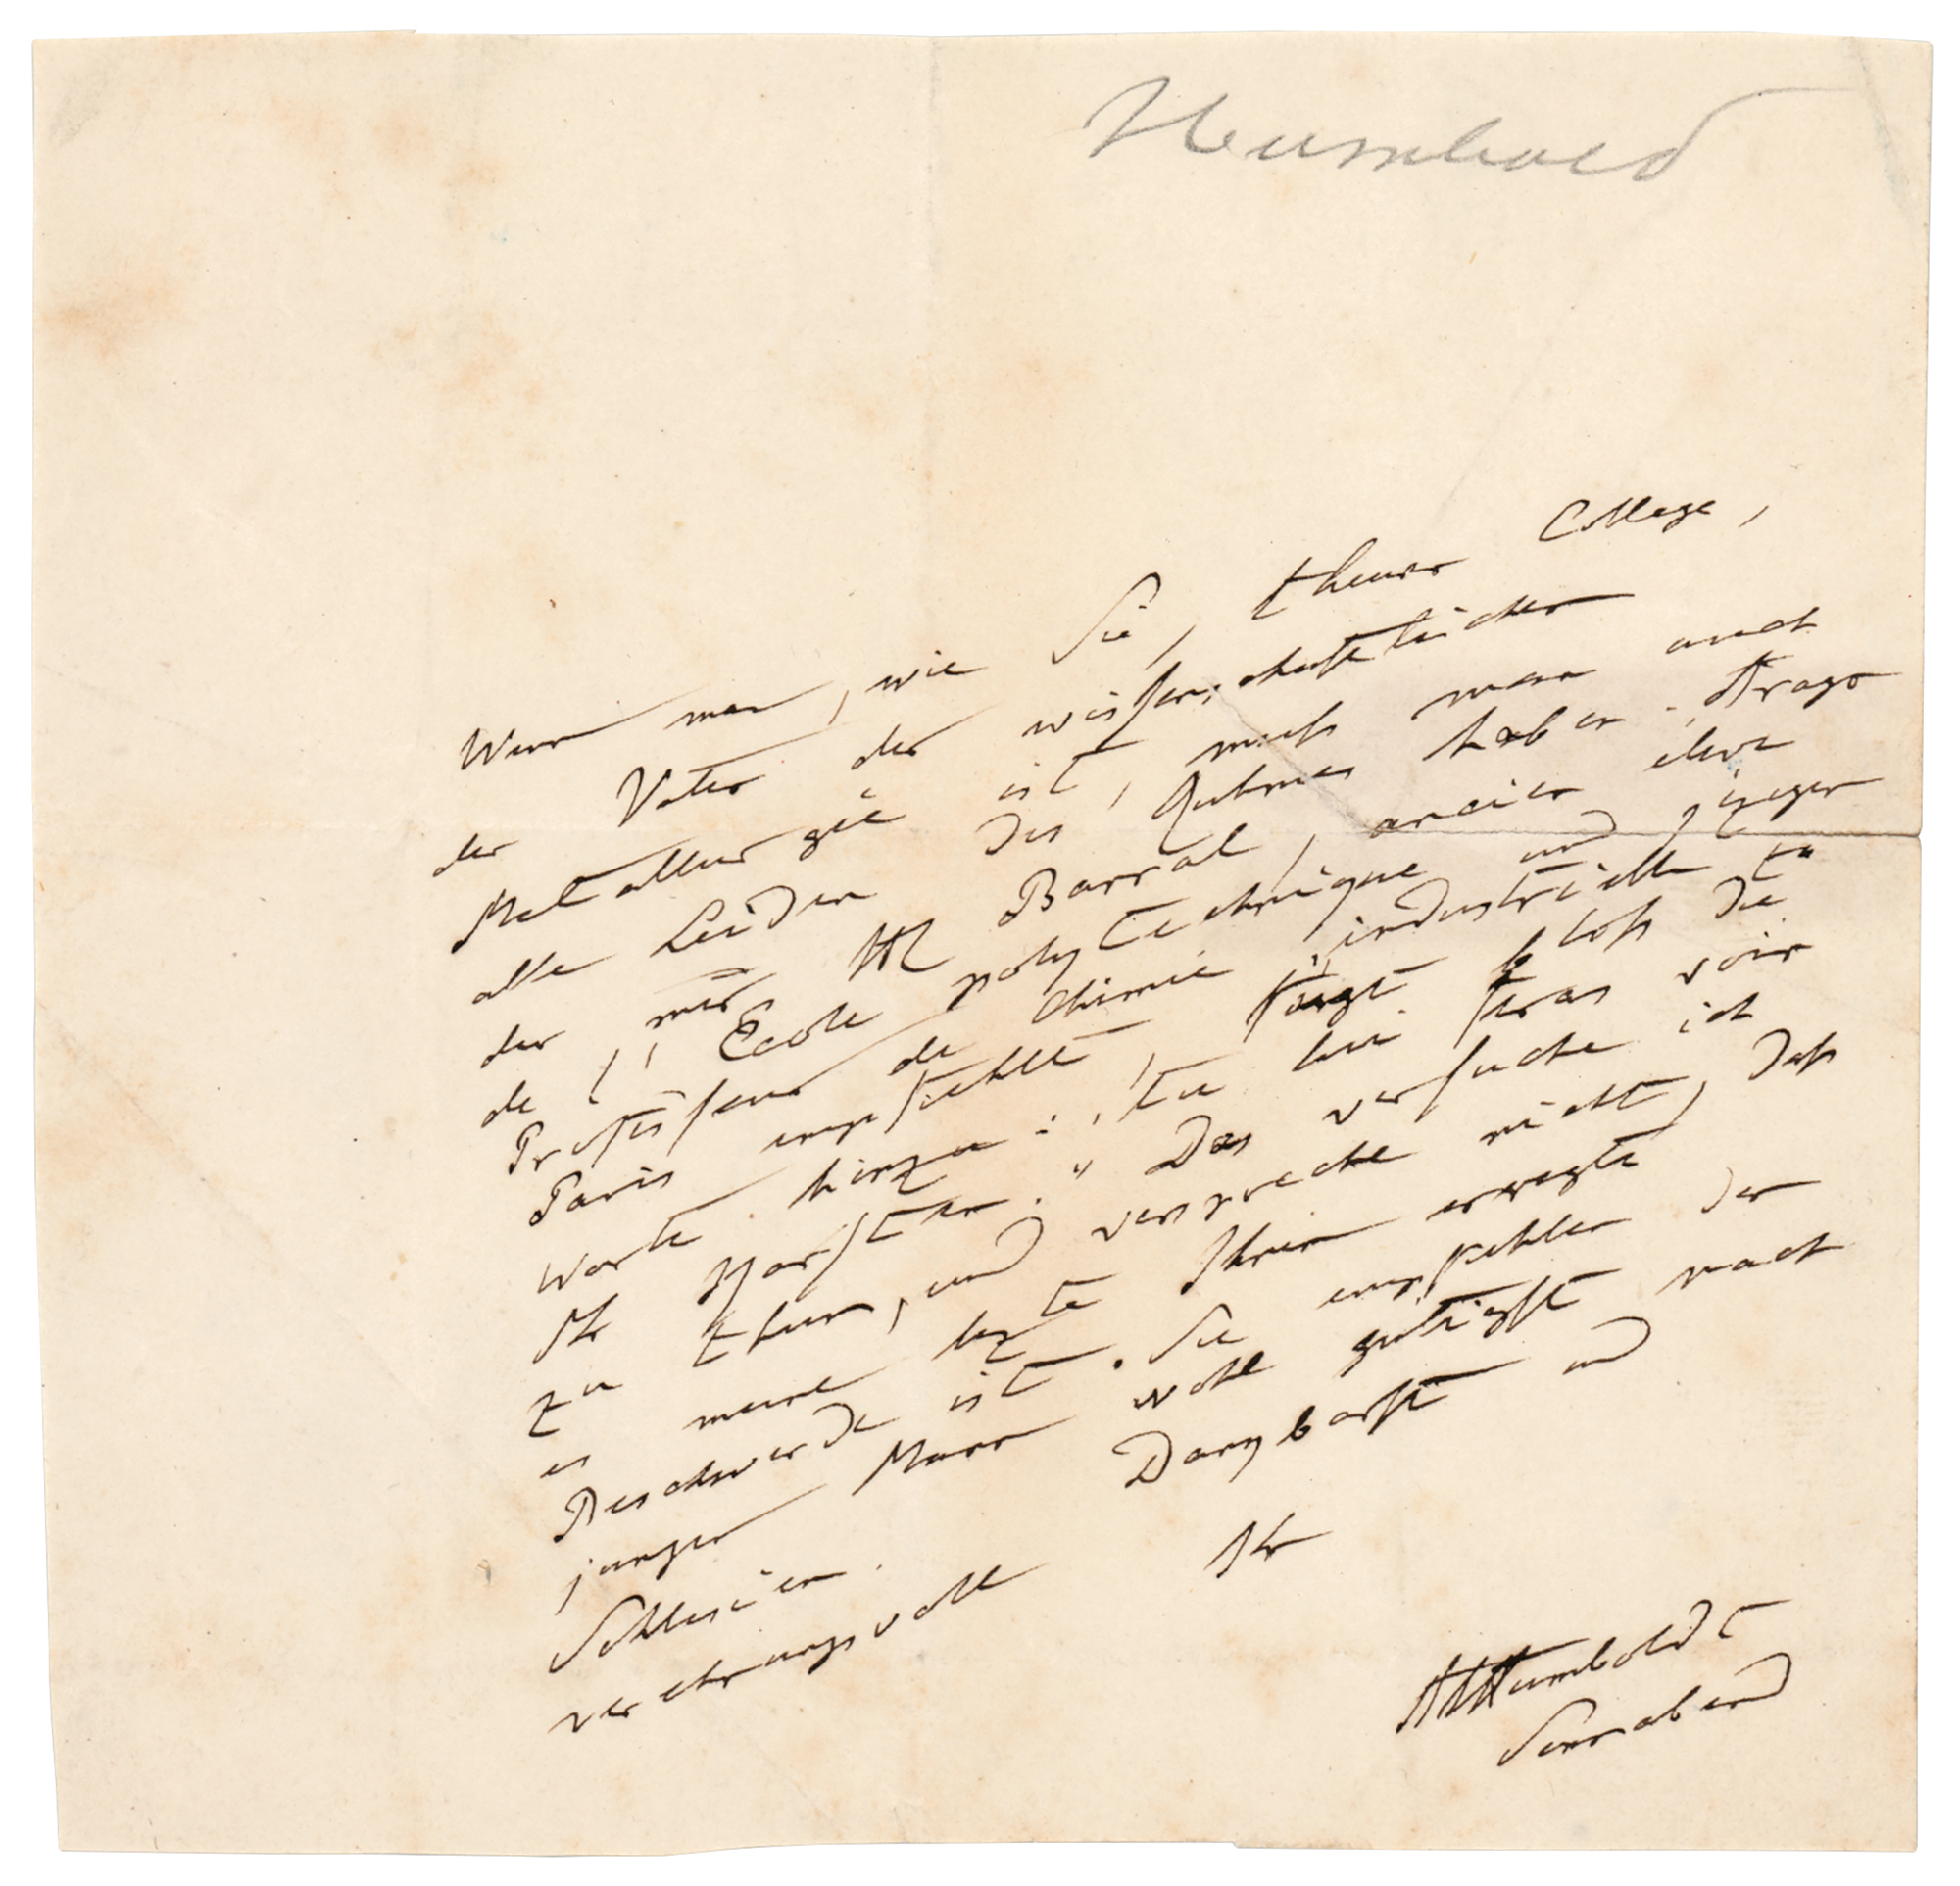 Humbold
Wenn man, wie Sie, theurer College,
der Vater der wissenschaftlichen
Metallurgie ist, muß man auch
alle Leiden des Ruhmes haben. Arago
der mir M Barral, ancien eleve
de l'Ecole polytechnique und jeziger
Professeur de chimie industrielle in
Paris empfiehlt, fügt bloß die
Worte hinzu: „tu lui feras voir
Mr Karsten." Das versuche ich
zu thun, und verspreche nicht, daß
es meine lezte Ihnen erregte
Beschwerde ist. Sie empfehlen den
jungen Mann wohl gütigst nach
Schlesien. Dankbarst und
verehrungsvoll Ihr
AvHumboldt
Sonnabend